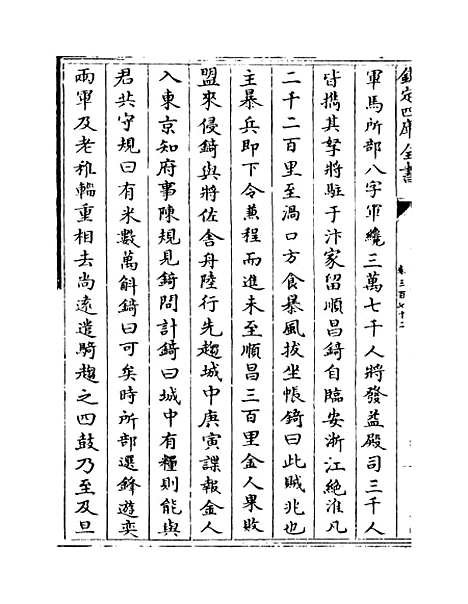 欽定四庫全書
卷三百七十二
軍馬所部八字軍纔三萬七千人將發益殿司三千人
皆攜其孥將駐于汴家留順昌錡自臨安泝江絶淮凡
二千二百里至渦口方食暴風拔坐帳錡曰此賊兆也
主暴兵即下令兼程而進未至順昌三百里金人果敗
盟來侵錡與將佐舍舟陸行先趨城中庚寅諜報金人
入東京知府事陳規見錡問計錡曰城中有糧則能與
君共守規曰有米數萬斛錡曰可矣時所部選鋒遊奕
兩軍及老稚輜重相去尚遠遣騎趨之四鼓乃至及旦